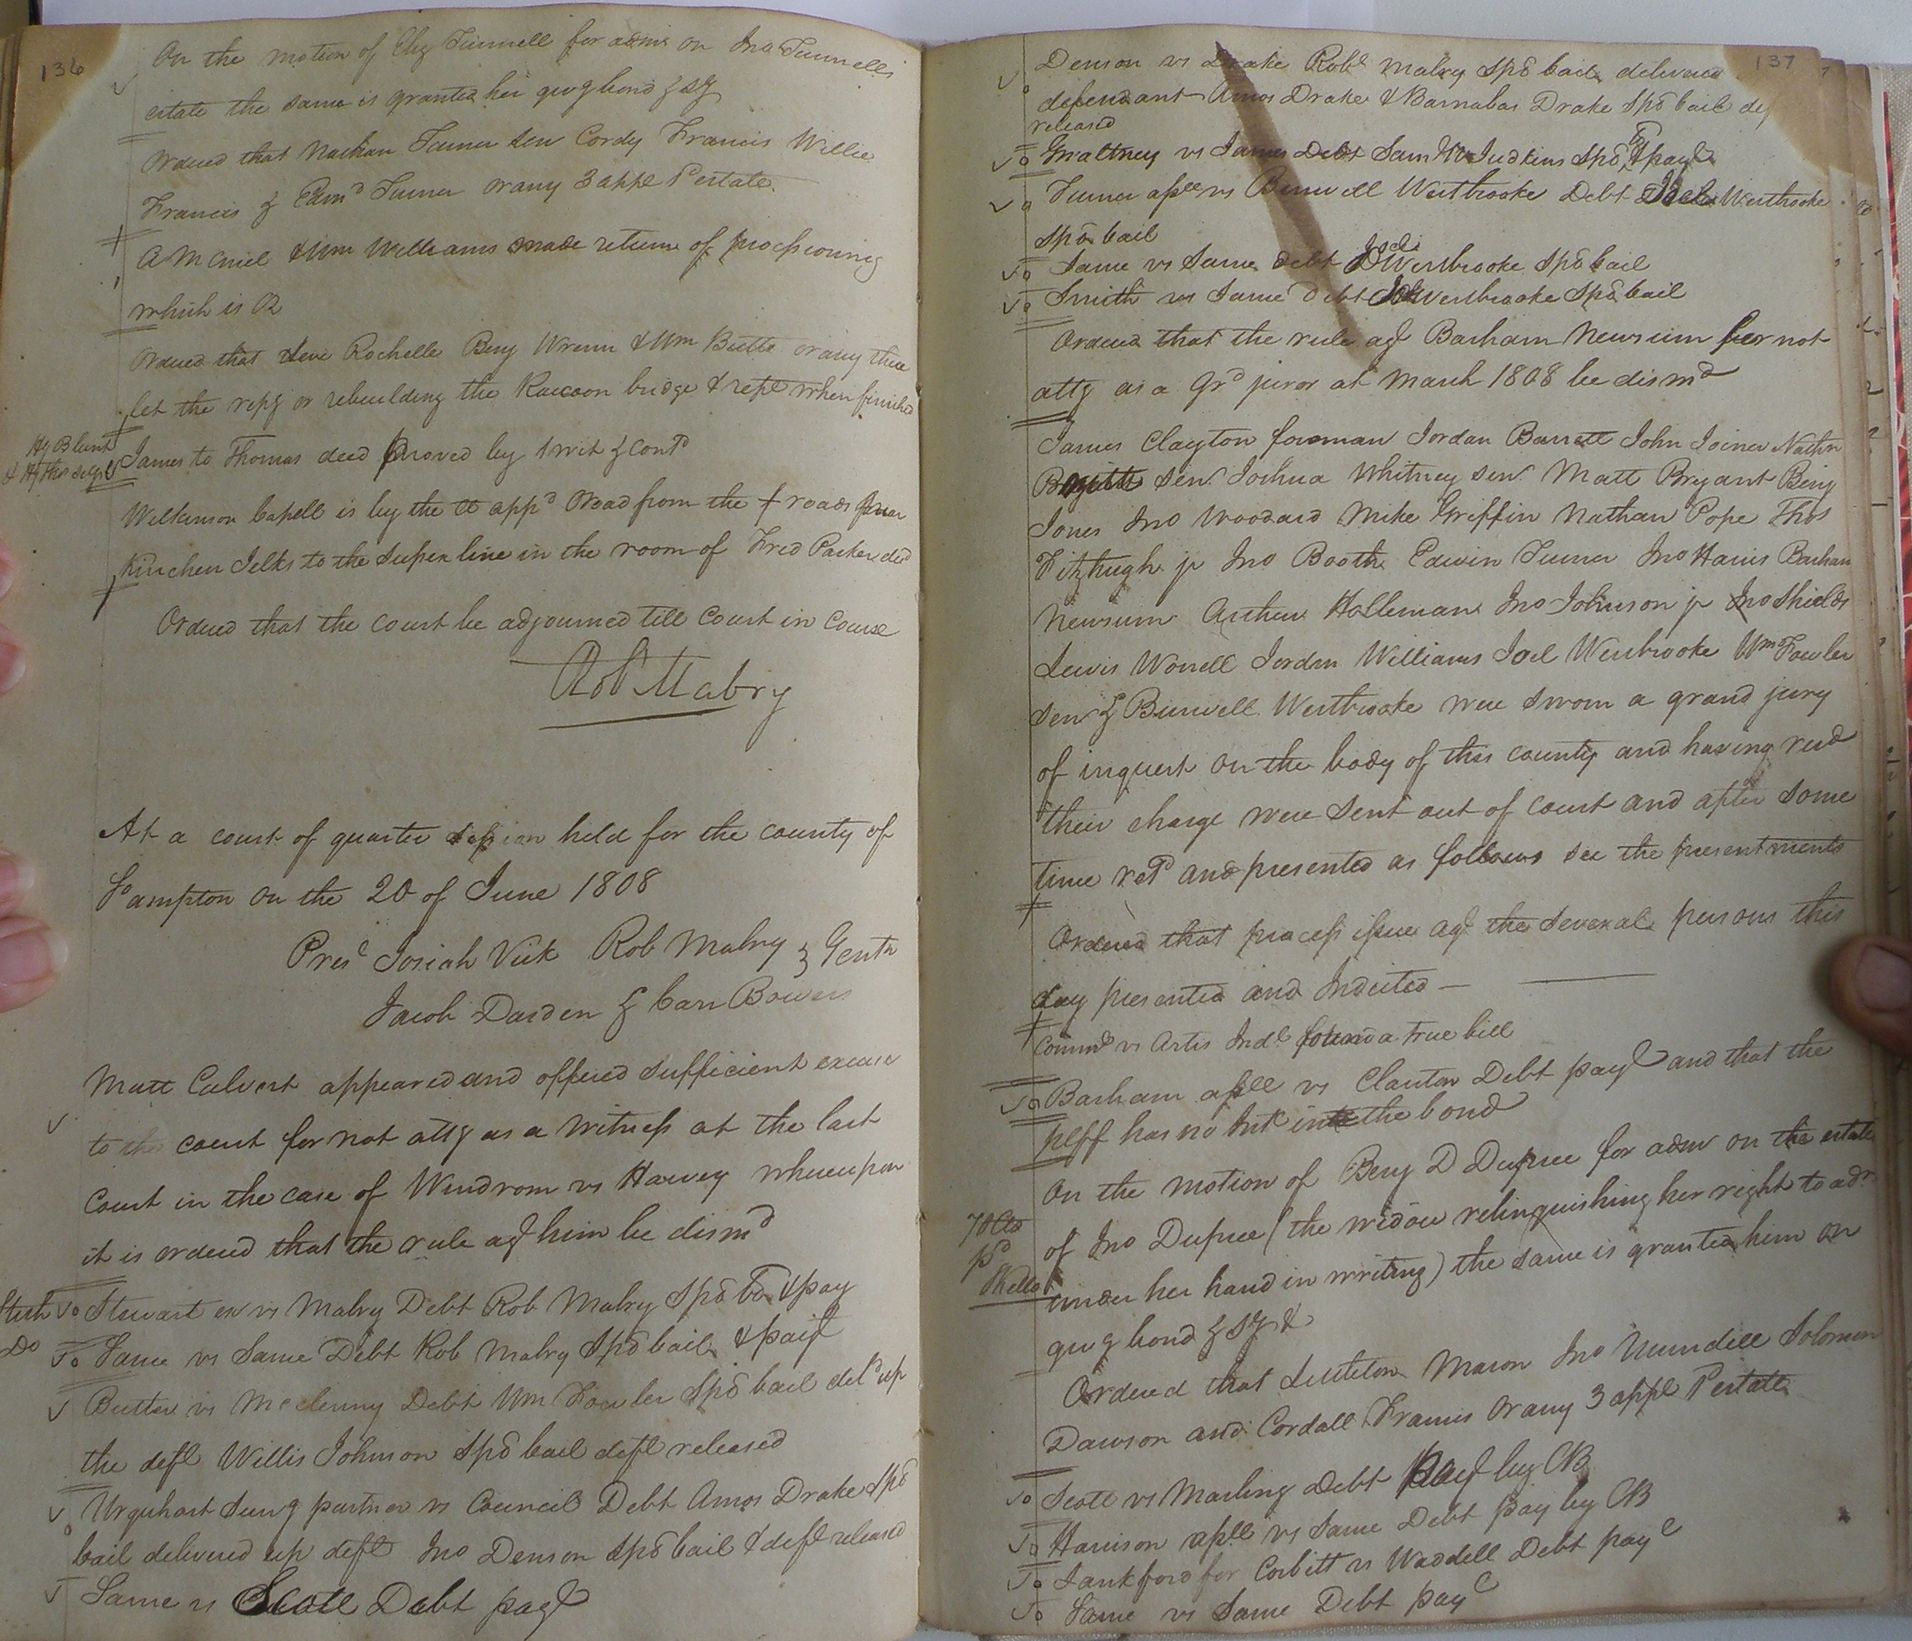 136
On the motion of Eliz Tunnell for adm on Jno Tunnells
estate the same is granted her givg bond & Sy
Ordered that Nathan Turner Sen Cordy Francis Willie
Francis & Edmd Turner or any 3 appe Pestate
A McNiel & Wm Williams made return of processioning
which is OR
Ordered that Levi Rochelle Benj Wrenn & Wm Butts or any three
let the repg or rebuilding the Raccoon bridge & rept when finished
Hy Blunt
& Hy Thos
James to Thomas deed proved by 1 wit & Contd
Wilkinson Capell is by the Ct appd Oroad from the f roads near
Kinchen Jelks to the Susex line in the room of Fred Parker decd
Ordered that the Court be adjourned till Court in Course
Rob Mabry
At a court of quarter session held for the county of
Sampton on the 20 of June 1808
Prest Josiah Vick Rob Mabry } Gentn
Jacob Darden & Carr Bowers
Matt Calvert appeared and offered sufficient excuse
to the court for not attg as a witness at the last
Court in the case of Windrom vs Harvey whereupon
it is ordered that the rule agt him be dismd
Stewart ex vs Mabry Debt Rob Mabry Spb ba & pay
Do
Same vs Same Debt Rob Mabry Spb bail & payt
Butler vs McClenny Debt Wm Fowler Spb bail deld up
the deft Willis Johnson Spb bail deft released
Urquhart Surg partner vs Council Debt Amos Drake Spb
bail delivered up deft Jno Denson Spb bail & deft released
Same vs Scott Debt payt
137
Denson vs Drake Robt Mabry Spb bail delivered
defendant Amos Drake & Barnabas Drake Spb bail def
released
Gwaltney vs James Debt Saml Judkins Spb & payt
Turner assee vs Benwell Westbrooke Debt Joel Westbrooke
Spb bail
Same vs Same debt Joel Westbrooke Spb bail
Smith vs Same Debt Westbrooke Spb bail
Ordered that the rule agt Barham Newsum for not
attg as a Grd juror at March 1808 be dismd
James Clayton foreman Jordan Barrett John Joiner Nathn
Sen Joshua Whitney Sen Matt Bryant Benj
Jones Jno Woodard Mike Griffin Nathan Pope Thos
Fitzhugh jr Jno Booth Edwin Turner Jno Harris Barham
Newsum Arthur Holleman Jno Johnson jr Jno Shields
Lewis Worrell Jordan Williams Joel Westbrooke Wm Fowler
Sen & Burwell Westbrooke were sworn a grand jury
of inquest on the body of this county and having recd
their charge were sent out of court and after some
time retd and presented as follows see the presentments
Ordered that process issue agt the several persons this
day presented and Indicted —
Commth vs Artis Indt found a true bill
Barham assee vs Clanton Debt payt and that the
plff has no Int in the bond
On the motion of Benj D Dupree for adm on the estate
70 Cts
pd
of Jno Dupree (the widow relinquishing her right to adr
under her hand in writing) the same is granted him on
givg bond & Sy &
Ordered that Littleton Mason Jno Nundell Solomon
Dawson and Cordall Francis or any 3 appe Pestate
Scott vs Marling Debt payt by CB
Harrison assee vs Same Debt pay by CB
Lankford for Corbitt vs Waddell Debt payt
Same vs Same Debt payt